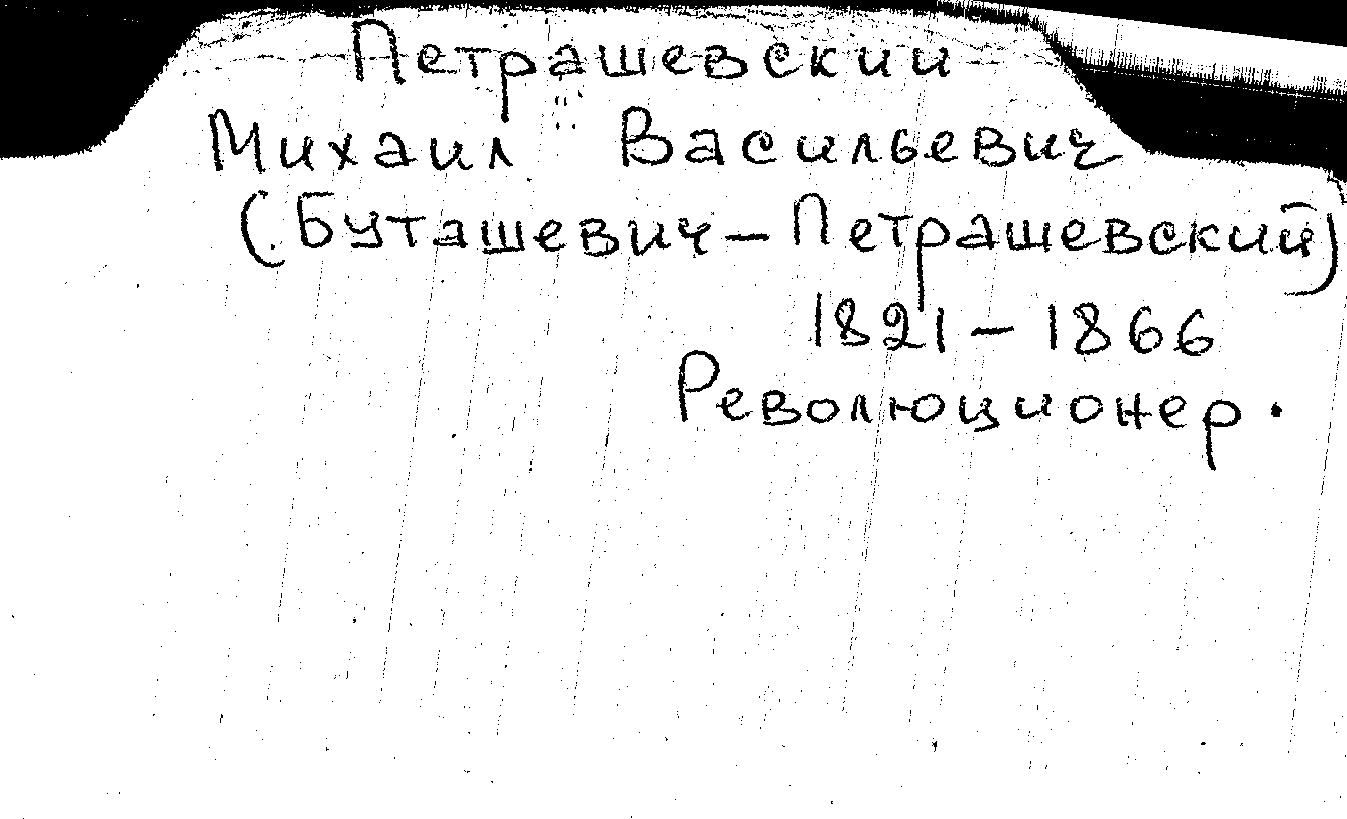 Петрашевский
Михаил Васильевич
(Буташевич – Петрашевский)
1821 – 1866
Революционер.